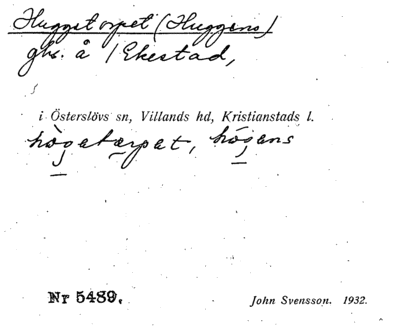 Huggstorpet (Huggens)
ghs. å /Ekestad,
i Österslövs sn, Villands hd, Kristianstads l.
hògatærpat, hògans
Nr 5489. John Svensson. 1932.